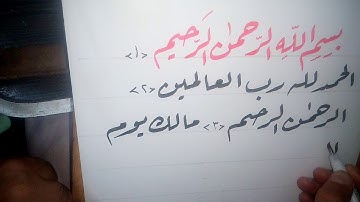 بِسْمِ اللّهِ الرّحمٰن الرَحيم <١>
الحمد لله رب العالمين <٢>
الرحمٰن الرحيم <٣> مالك يوم